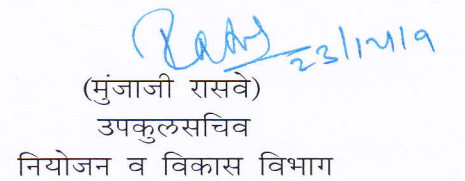 23/12/19
(मुंजाजी रासवे)
उपकुलसचिव
नियोजन व विकास विभाग